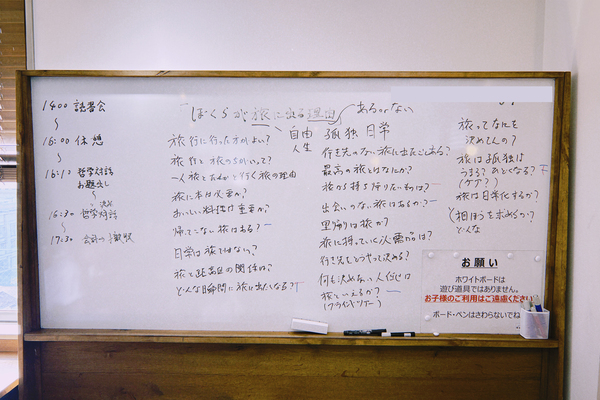 14:00 読書会
16:00 休憩
16:10 哲学対話
お題出し
16:30 哲学対話
17:30
「ぼくらが旅に出る理由
あるorない
自由 孤独 日常
人生
旅行に行った方がよい?
旅行と旅のちがいって?
一人旅とだれかと行く旅の理由
旅に本は必要か?
おいしい料理は重要か?
帰ってこない旅はある?
日常は旅ではない?
旅と読書の関係は?
どんな瞬間に旅に出たくなる?
行き先のない旅に出たことある?
最高の旅とはなにか?
旅から持ち帰りたいものは?
出会いのない旅はあるか?
里帰りは旅か?
旅に持っていく必需品は?
行き先をどうやって決める?
何も決めない人任せは
旅といえるか?
旅ってなにを
決めてんの?
旅は孤独は
うまる?あとくなる?
(ケア?)
旅は日常化するか?
相ぼうを求めるか?
どんな
お願い
ホワイトボードは
遊び道具ではありません。
お子様のご利用はご遠慮ください
ボード・ペンはさわらないでね